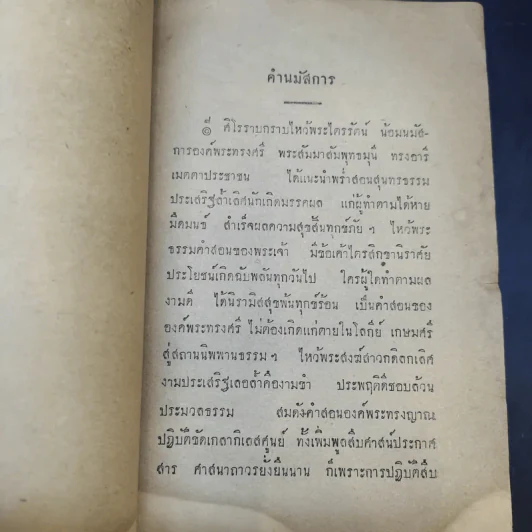 คำนมัสการ
๏ ศิโรราบกราบไหว้พระไตรรัตน์ น้อมนมัส-
การองค์พระทรงศรี พระสัมมาสัมพุทธมุนี ทรงอารี
เมตตาประชาชน ได้แนะนำพร่ำสอนสุนทรธรรม
ประเสริฐล้ำเลิศนักเกิดมรรคผล แก่ผู้ทำตามได้หาย
มืดมนข์ สำเร็จผลความสุขสิ้นทุกข์ภัย ฯ ไหว้พระ
ธรรมคำสอนของพระเจ้า มีข้อเค้าไตรสิกขานิราศัย
ประโยชน์เกิดฉับพลันทุกวันไป ใครผู้ใดทำตามผล
งามดี ได้นิรามิสสุขพ้นทุกข์ร้อน เป็นคำสอนของ
องค์พระทรงศรี ไม่ต้องเกิดแก่ตายในโลกีย์ เกษมศรี
สู่สถานนิพพานธรรม ฯ ไหว้พระสงฆ์สาวกดิลกเลิศ
งามประเสริฐเลอล้ำคืองามขำ ประพฤติดีชอบล้วน
ประมวลธรรม สมดังคำสอนองค์พระทรงญาณ
ปฏิบัติขัดเกลากิเลสศูนย์ ทั้งเพิ่มพูลสืบศาสน์ประกาศ
สาร ศาสนาถาวรยั่งยืนนาน ก็เพราะการปฏิบัติสืบ